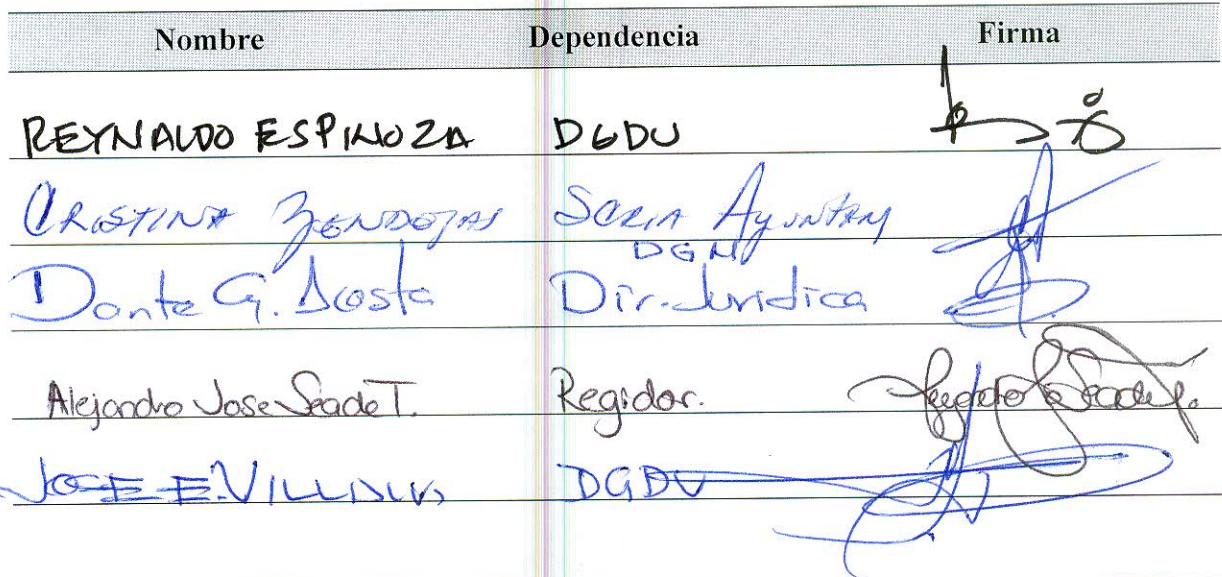 Nombre Dependencia Firma
REYNALDO ESPINOZA DGDU
CRISTINA ZENDEJAS SCRIA AYUNTAM
DGN
Dante G. Acosta Dir. Juridica
Alejandro Jose Seade T. Regidor.
JOSE E. VILLALVA DGDU